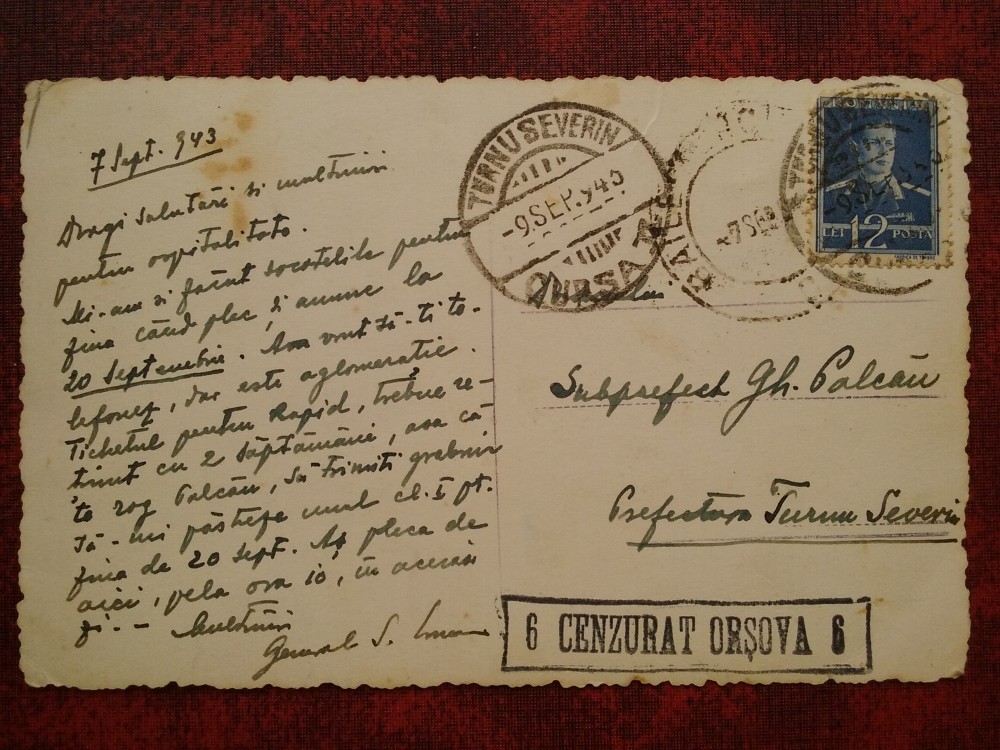 7 Sept. 943
Dragi salutări si multumiri
pentru ospitalitate.
Mi-am si făcut socotelile pentru
ziua când plec, și anume la
20 Septembrie. Am vrut să-ti te-
lefonez, dar este aglomeratie.
Tichetul pentru Rapid, trebue re-
tinut cu 2 săptămâni, asa că
te rog Palcău, să trimiti grabnic
să-mi păsteze unul cl. I pt.
ziua de 20 Sept. Aș pleca de
aici, pela ora 10, în aceiasi
zi. - Multumiri
General S.
TURNU SEVERIN
-9 SEP. 943
CURSA
BAILE
-7 SEP
ROMANIA
LEI 12 POSTA
TURNU SEVERIN
-9 SEP
Domnului
Subprefect Gh. Palcău
Prefectura Turnu Severin
6 CENZURAT ORȘOVA 6